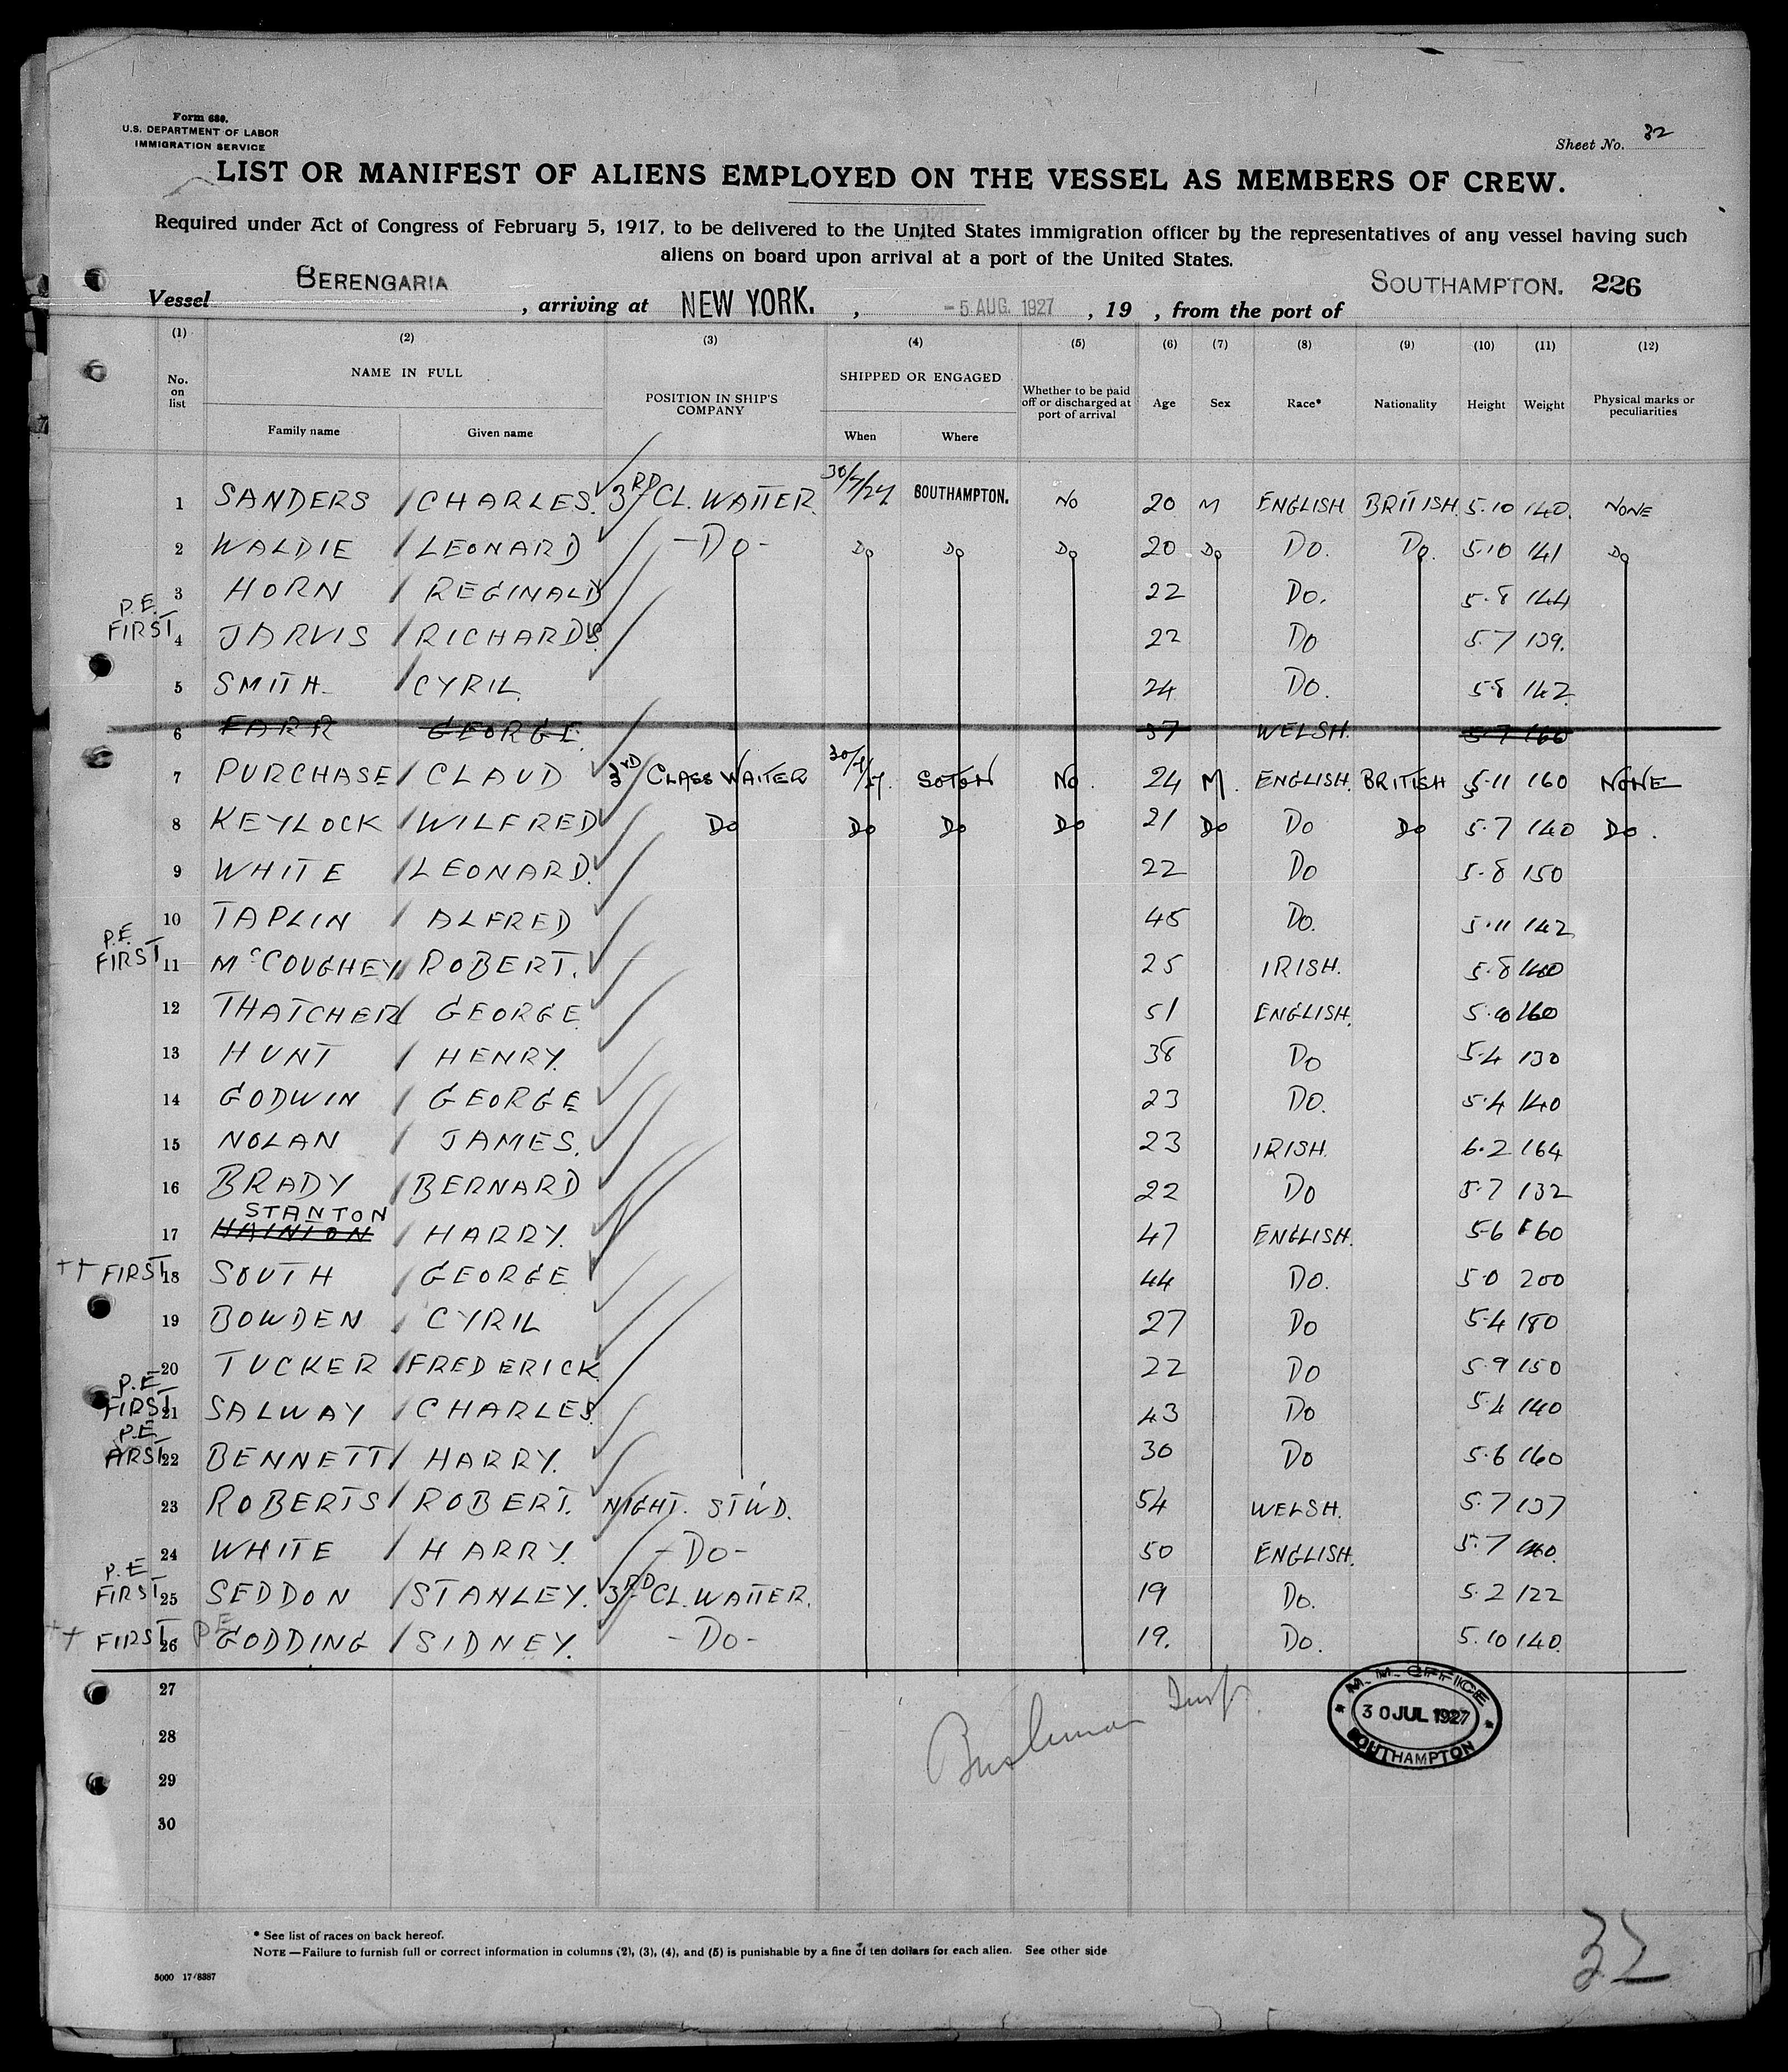 Form 680.
U.S. DEPARTMENT OF LABOR
IMMIGRATION SERVICE
Sheet No. 32
LIST OR MANIFEST OF ALIENS EMPLOYED ON THE VESSEL AS MEMBERS OF CREW.
Required under Act of Congress of February 5, 1917, to be delivered to the United States immigration officer by the representatives of any vessel having such
aliens on board upon arrival at a port of the United States.
Vessel BERENGARIA , arriving at NEW YORK. , -5 AUG. 1927 , 19 , from the port of SOUTHAMPTON. 226
(1) (2) (3) (4) (5) (6) (7) (8) (9) (10) (11) (12)
No. on list NAME IN FULL Family name Given name POSITION IN SHIP'S COMPANY SHIPPED OR ENGAGED When Where Whether to be paid off or discharged at port of arrival Age Sex Race* Nationality Height Weight Physical marks or peculiarities
1 SANDERS / CHARLES. 3RD CL. WAITER. 30/7/27 SOUTHAMPTON. NO 20 M ENGLISH BRITISH. 5.10 140. NONE
2 WALDIE / LEONARD -DO- DO DO DO 20 DO DO. DO. 5.10 141 DO
3 HORN / REGINALD 22 DO. 5.8 144
P.E. FIRST 4 JARVIS / RICHARD S. 22 DO 5.7 139.
5 SMITH. / CYRIL. 24 DO. 5.8 142
6 FARR GEORGE. 37 WELSH. 5.7 160
7 PURCHASE / CLAUD 3RD CLASS WAITER 30/7/27. SOTON NO. 24 M. ENGLISH. BRITISH 5.11 160 NONE
8 KEYLOCK / WILFRED DO DO DO DO 21 DO DO DO 5.7 140 DO.
9 WHITE / LEONARD. 22 DO 5.8 150
10 TAPLIN / ALFRED 45 DO. 5.11 142
P.E. FIRST 11 McCOUGHEY / ROBERT. 25 IRISH. 5.8 140
12 THATCHER / GEORGE. 51 ENGLISH. 160
13 HUNT / HENRY. 38 DO 5.4 130
14 GODWIN / GEORGE 23 DO. 5.4 140
15 NOLAN / JAMES. 23 IRISH. 6.2 164
16 BRADY / BERNARD 22 DO 5.7 132
STANTON
17 HAINTON / HARRY. 47 ENGLISH. 5.6 160
++ FIRST 18 SOUTH / GEORGE 44 DO. 5.0 200
19 BOWDEN / CYRIL 27 DO 5.4 180
20 TUCKER / FREDERICK 22 DO 5.9 150
P.E. FIRST 21 SALWAY / CHARLES. 43 DO 5.4 140
P.E. FIRST 22 BENNETT / HARRY. 30 DO 5.6 160
23 ROBERTS / ROBERT. NIGHT. STWD. 54 WELSH. 5.7 137
24 WHITE / HARRY. -DO- 50 ENGLISH. 5.7 140.
P.E FIRST 25 SEDDON / STANLEY. 3RD CL. WAITER. 19 DO. 5.2 122
++ FIRST 26 PE GODDING / SIDNEY. -DO- 19. DO. 5.10 140.
27
28
29
30
M.M. OFFICE
30 JUL 1927
SOUTHAMPTON
* See list of races on back hereof.
NOTE—Failure to furnish full or correct information in columns (2), (3), (4), and (5) is punishable by a fine of ten dollars for each alien. See other side
5000 17/8387
32